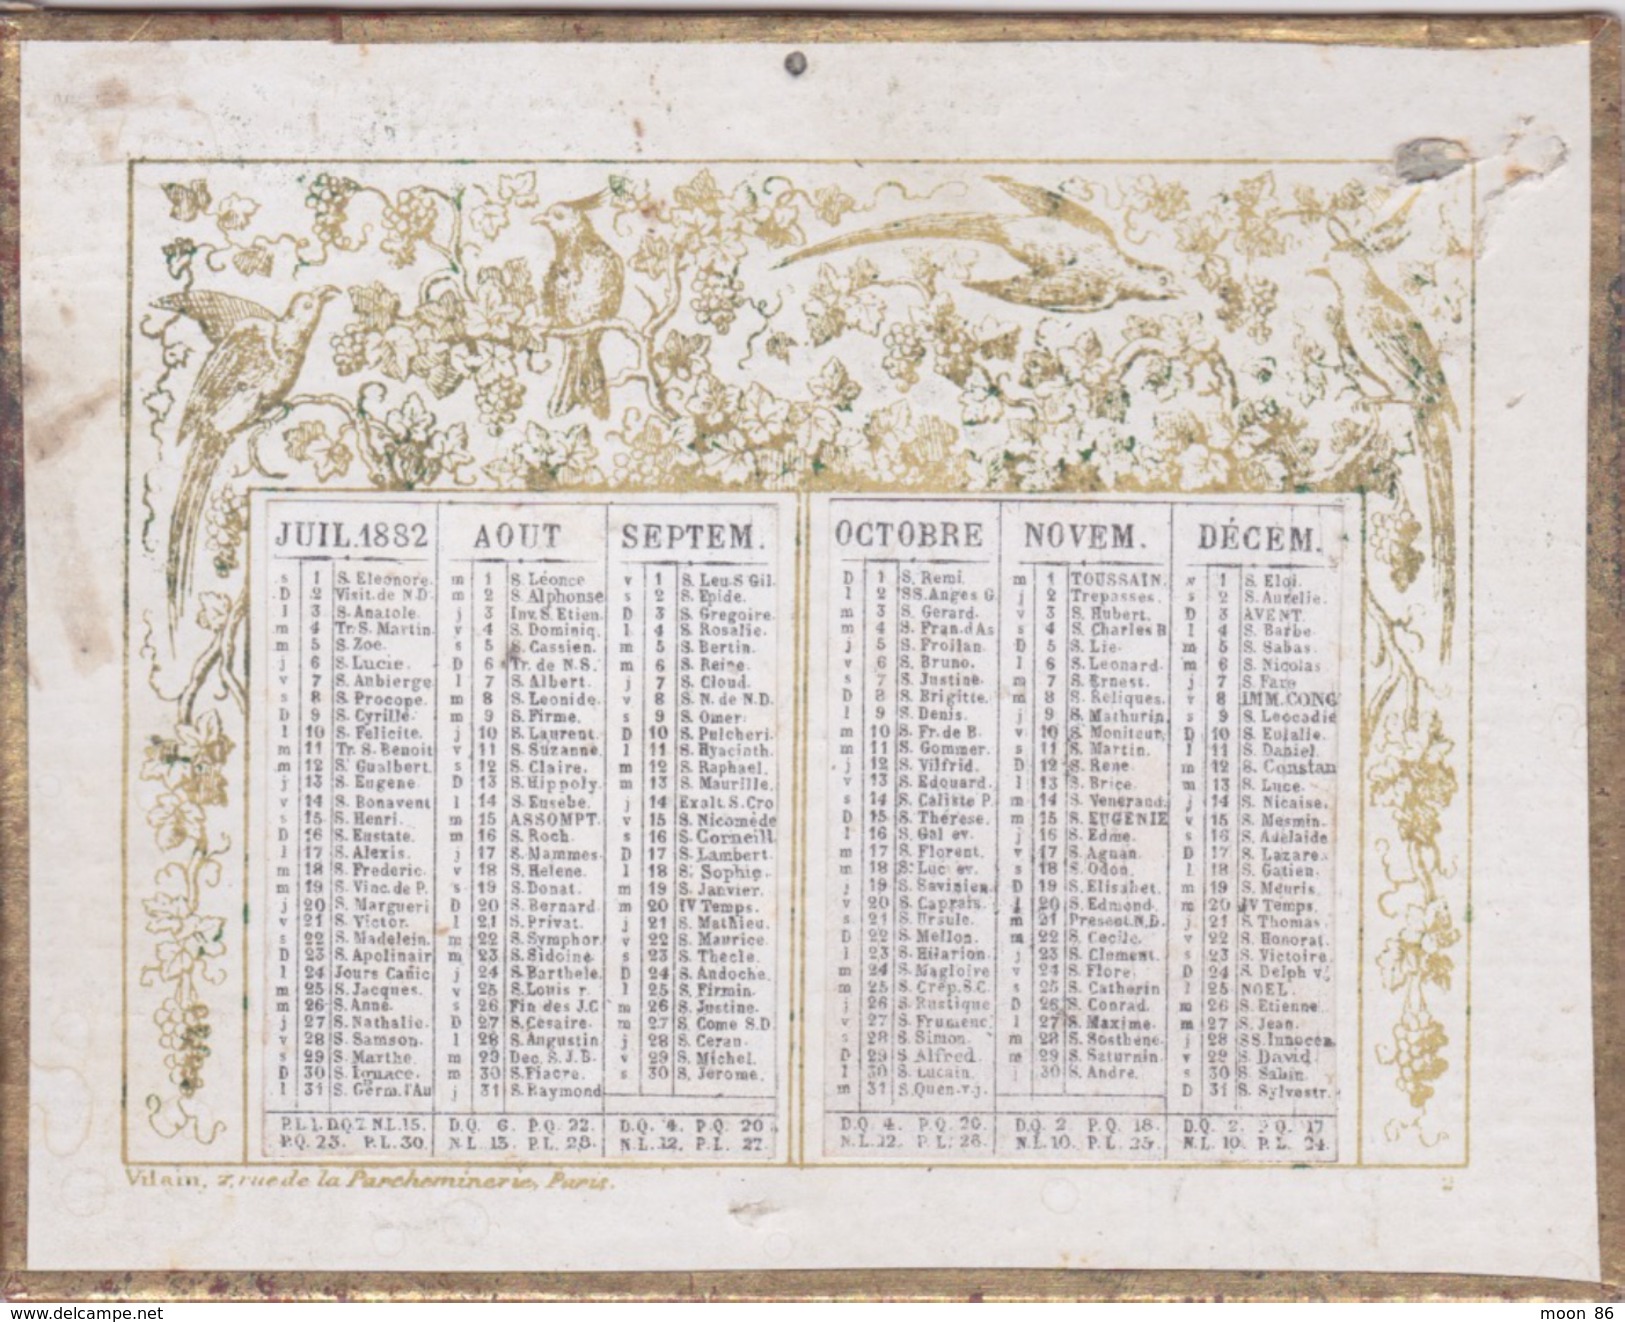 JUIL.1882
s 1 S. Eleonore.
D 2 Visit. de N.D.
l 3 S. Anatole.
m 4 Tr. S. Martin.
m 5 S. Zoe.
j 6 S. Lucie.
v 7 S. Aubierge
s 8 S. Procope.
D 9 S. Cyrille.
l 10 S. Felicite.
m 11 Tr. S. Benoit
m 12 S. Gualbert.
j 13 S. Eugene.
v 14 S. Bonavent
s 15 S. Henri.
D 16 S. Eustate.
l 17 S. Alexis.
m 18 S. Frederic.
m 19 S. Vinc. de P.
j 20 S. Margueri
v 21 S. Victor.
s 22 S. Madelein.
D 23 S. Apolinair
l 24 Jours Canic
m 25 S. Jacques.
m 26 S. Anne.
j 27 S. Nathalie.
v 28 S. Samson.
s 29 S. Marthe.
D 30 S. Ignace.
l 31 S. Germ. l'Au
P.L. 1. D.Q. 7. N.L. 15.
P.Q. 23. P.L. 30.
AOUT
m 1 S. Léonce
m 2 S. Alphonse
j 3 Inv. S. Etien.
v 4 S. Dominiq.
s 5 S. Cassien.
D 6 Tr. de N.S.
l 7 S. Albert.
m 8 S. Leonide.
m 9 S. Firme.
j 10 S. Laurent.
v 11 S. Suzanne.
s 12 S. Claire.
D 13 S. Hippoly.
l 14 S. Eusebe.
m 15 ASSOMPT.
m 16 S. Roch.
j 17 S. Mammes.
v 18 S. Helene.
s 19 S. Donat.
D 20 S. Bernard.
l 21 S. Privat.
m 22 S. Symphor.
m 23 S. Sidoine.
j 24 S. Barthele.
v 25 S. Louis r.
s 26 Fin des J.C
D 27 S. Cesaire.
l 28 S. Augustin
m 29 Dec. S. J.B.
m 30 S. Fiacre.
j 31 S. Raymond
D.Q. 6. P.Q. 22.
N.L. 13. P.L. 28.
SEPTEM.
v 1 S. Leu S Gil.
s 2 S. Epide.
D 3 S. Gregoire.
l 4 S. Rosalie.
m 5 S. Bertin.
m 6 S. Reine.
j 7 S. Cloud.
v 8 S. N. de N.D.
s 9 S. Omer.
D 10 S. Pulcheri.
l 11 S. Hyacinth.
m 12 S. Raphael.
m 13 S. Maurille.
j 14 Exalt. S. Cro
v 15 S. Nicomède
s 16 S. Corneill
D 17 S. Lambert.
l 18 S. Sophie.
m 19 S. Janvier.
m 20 IV Temps.
j 21 S. Mathieu.
v 22 S. Maurice.
s 23 S. Thecle.
D 24 S. Andoche.
l 25 S. Firmin.
m 26 S. Justine.
m 27 S. Come S.D.
j 28 S. Ceran.
v 29 S. Michel.
s 30 S. Jerome.
D.Q. 4. P.Q. 20.
N.L. 12. P.L. 27.
OCTOBRE
D 1 S. Remi.
l 2 SS. Anges G.
m 3 S. Gerard.
m 4 S. Fran. d As
j 5 S. Froilan.
v 6 S. Bruno.
s 7 S. Justine.
D 8 S. Brigitte.
l 9 S. Denis.
m 10 S. Fr. de B.
m 11 S. Gommer.
j 12 S. Vilfrid.
v 13 S. Edouard.
s 14 S. Caliste P.
D 15 S. Thérese.
l 16 S. Gal ev.
m 17 S. Florent.
m 18 S. Luc ev.
j 19 S. Savinien.
v 20 S. Caprais.
s 21 S. Ursule.
D 22 S. Mellon.
l 23 S. Hilarion.
m 24 S. Magloire
m 25 S. Crep. S.C.
j 26 S. Rustique
v 27 S. Frumenc.
s 28 S. Simon.
D 29 S. Alfred.
l 30 S. Lucain.
m 31 S. Quen. v.j.
D.Q. 4. P.Q. 20.
N.L. 12. P.L. 26.
NOVEM.
m 1 TOUSSAIN.
j 2 Trepasses.
v 3 S. Hubert.
s 4 S. Charles B
D 5 S. Lie.
l 6 S. Leonard.
m 7 S. Ernest.
m 8 S. Reliques.
j 9 S. Mathurin.
v 10 S. Moniteur.
s 11 S. Martin.
D 12 S. Rene.
l 13 S. Brice.
m 14 S. Venerand.
m 15 S. EUGENIE
j 16 S. Edme.
v 17 S. Agnan.
s 18 S. Odon.
D 19 S. Elisabet.
l 20 S. Edmond.
m 21 Present. N.D.
m 22 S. Cecile.
j 23 S. Clement.
v 24 S. Flore.
s 25 S. Catherin
D 26 S. Conrad.
l 27 S. Maxime.
m 28 S. Sosthene.
m 29 S. Saturnin.
j 30 S. Andre.
D.Q. 2 P.Q. 18.
N.L. 10. P.L. 25.
DÉCEM.
v 1 S. Eloi.
s 2 S. Aurelie.
D 3 AVENT.
l 4 S. Barbe
m 5 S. Sabas.
m 6 S. Nicolas
j 7 S. Fare
v 8 IMM. CONC
s 9 S. Leocadie
D 10 S. Eulalie.
l 11 S. Daniel.
m 12 S. Constan
m 13 S. Luce.
j 14 S. Nicaise.
v 15 S. Mesmin.
s 16 S. Adelaide
D 17 S. Lazare.
l 18 S. Gatien.
m 19 S. Meuris.
m 20 IV Temps.
j 21 S. Thomas.
v 22 S. Honorat.
s 23 S. Victoire.
D 24 S. Delph v.j
l 25 NOEL.
m 26 S. Etienne.
m 27 S. Jean.
j 28 SS. Innocen
v 29 S. David.
s 30 S. Sabin.
D 31 S. Sylvestr.
D.Q. 2. P.Q. 17
N.L. 10. P.L. 24.
Vilain, 7, rue de la Parcheminerie, Paris.
2
moon 86
www.delcampe.net